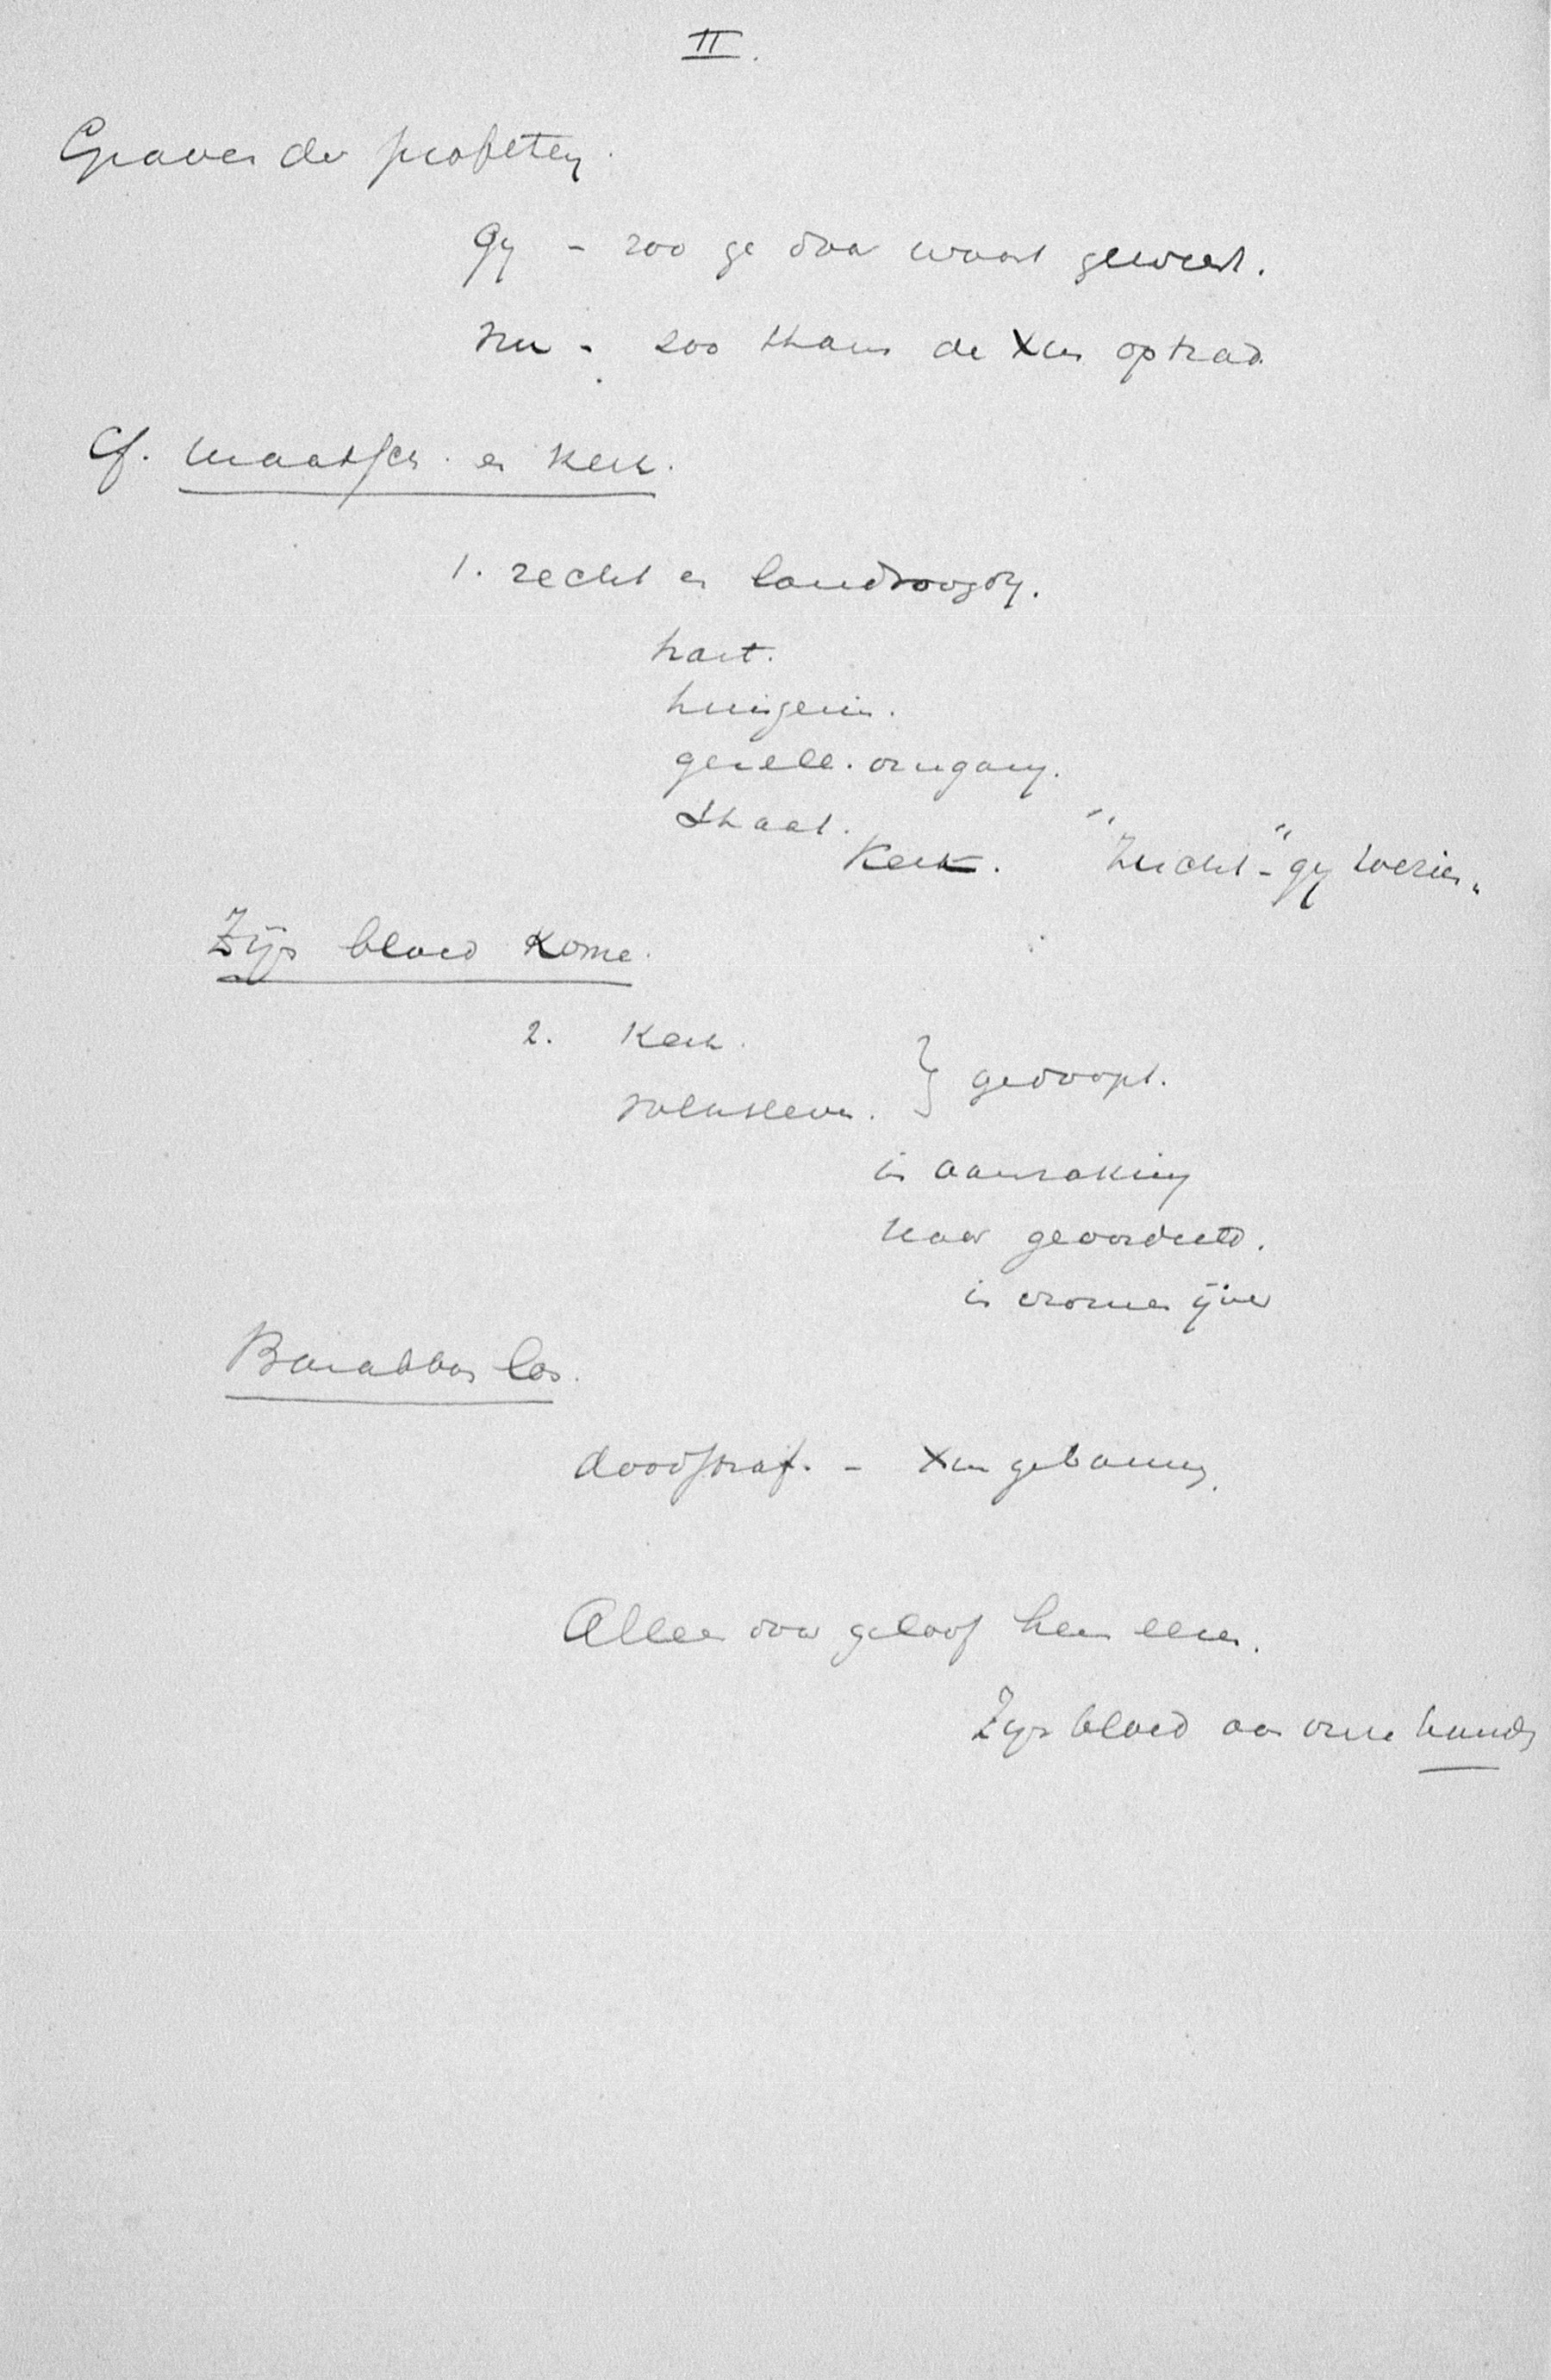 II.
Graven der profeten.
Gy - zoo ge daar waart geweest.
Nu - zoo thans de Xus optrad.
Cf. maatsch. en kerk.
1. recht en landvoogdy.
hart.
huisgezin.
gezell. omgang.
Staat.
Kerk.
"Zucht" - gy
Zijn bloed kome.
2. Kerk.
volksleven. } gedoopt.
in aanraking
naar geoordeeld.
in vrome ijver
Barabbas los.
doodstraf. - Xus gebannen.
Alleen door geloof hem eeren.
Zijn bloed aan onze handen